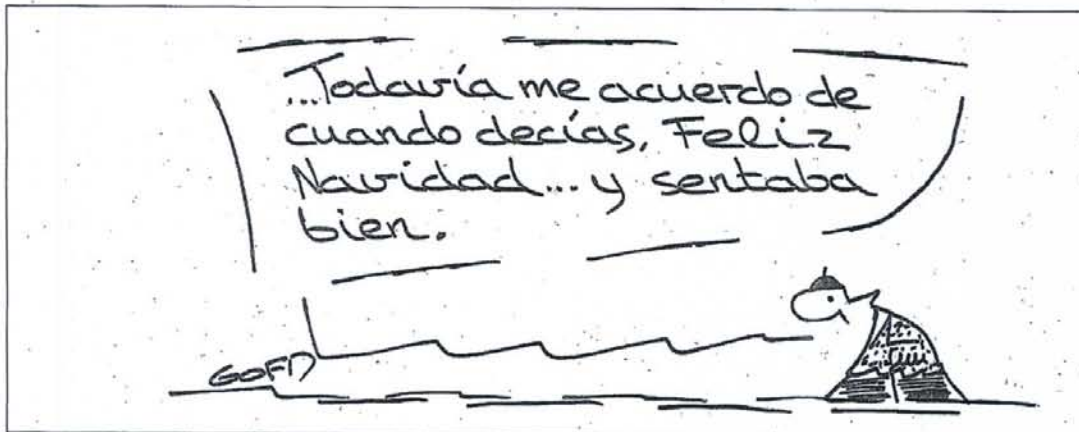 ...Todavía me acuerdo de
cuando decías, Feliz
Navidad... y sentaba
bien.